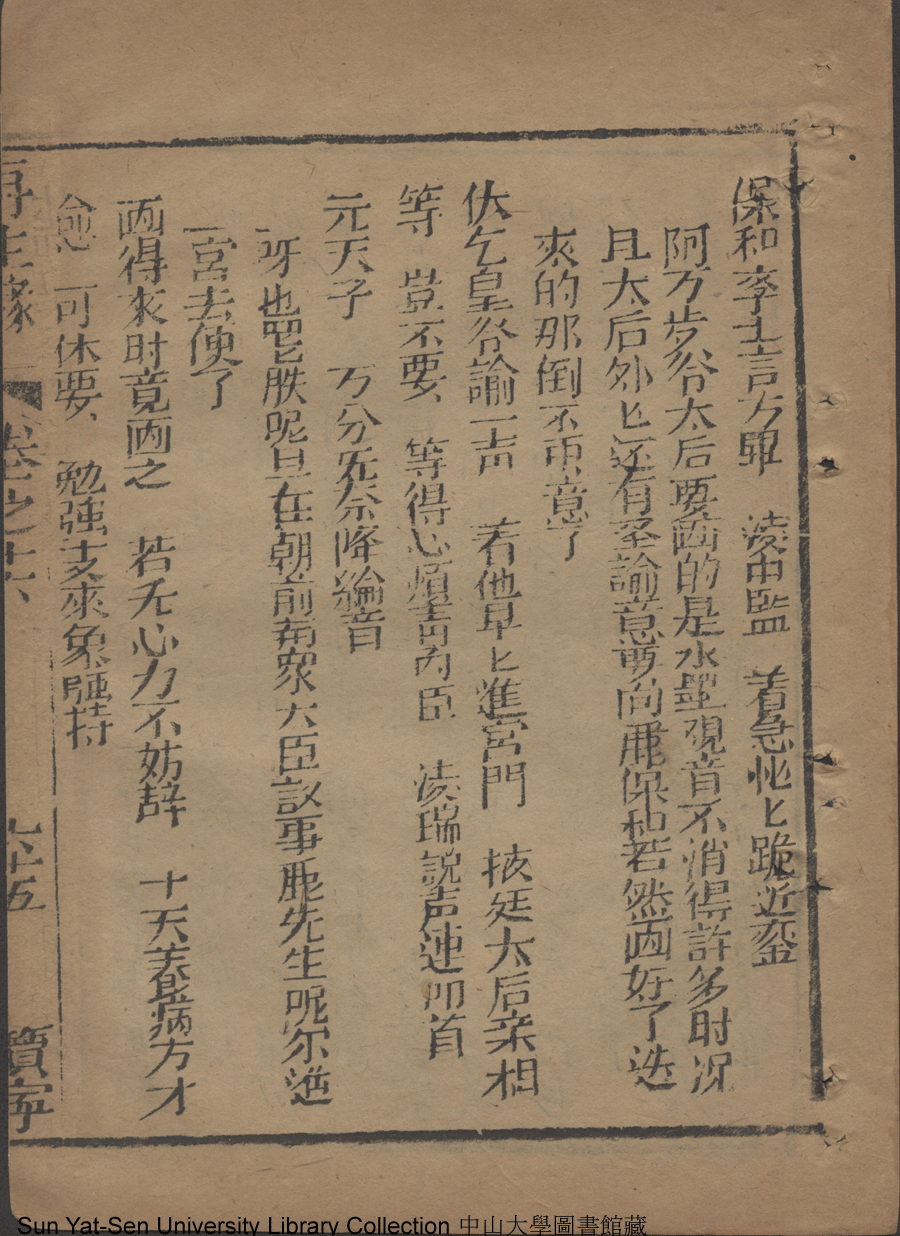 保和李士言方畢　凌中監　着急忙匕跪近鑾
阿万步爷太后要画的是水墨观音不消得許多时况
且太后外匕还有圣諭意要向郦保和若然画好了送
來的那倒不中意了
伏乞皇爷諭一声　着他早匕進宮門　掖廷太后亲相
等　豈不要　等得心煩責内臣　凌瑞說声連叩首
元天子　万分无奈降綸音
呀也罢朕呢且在朝前郦先生呢尔進
一宮去便了
画得來时竟画之　若无心力不妨辞　十天养病方才
愈　可休要　勉強支來象強持
再生緣　卷之十六　九十五　寶寧
Sun Yat-Sen University Library Collection 中山大學圖書館藏